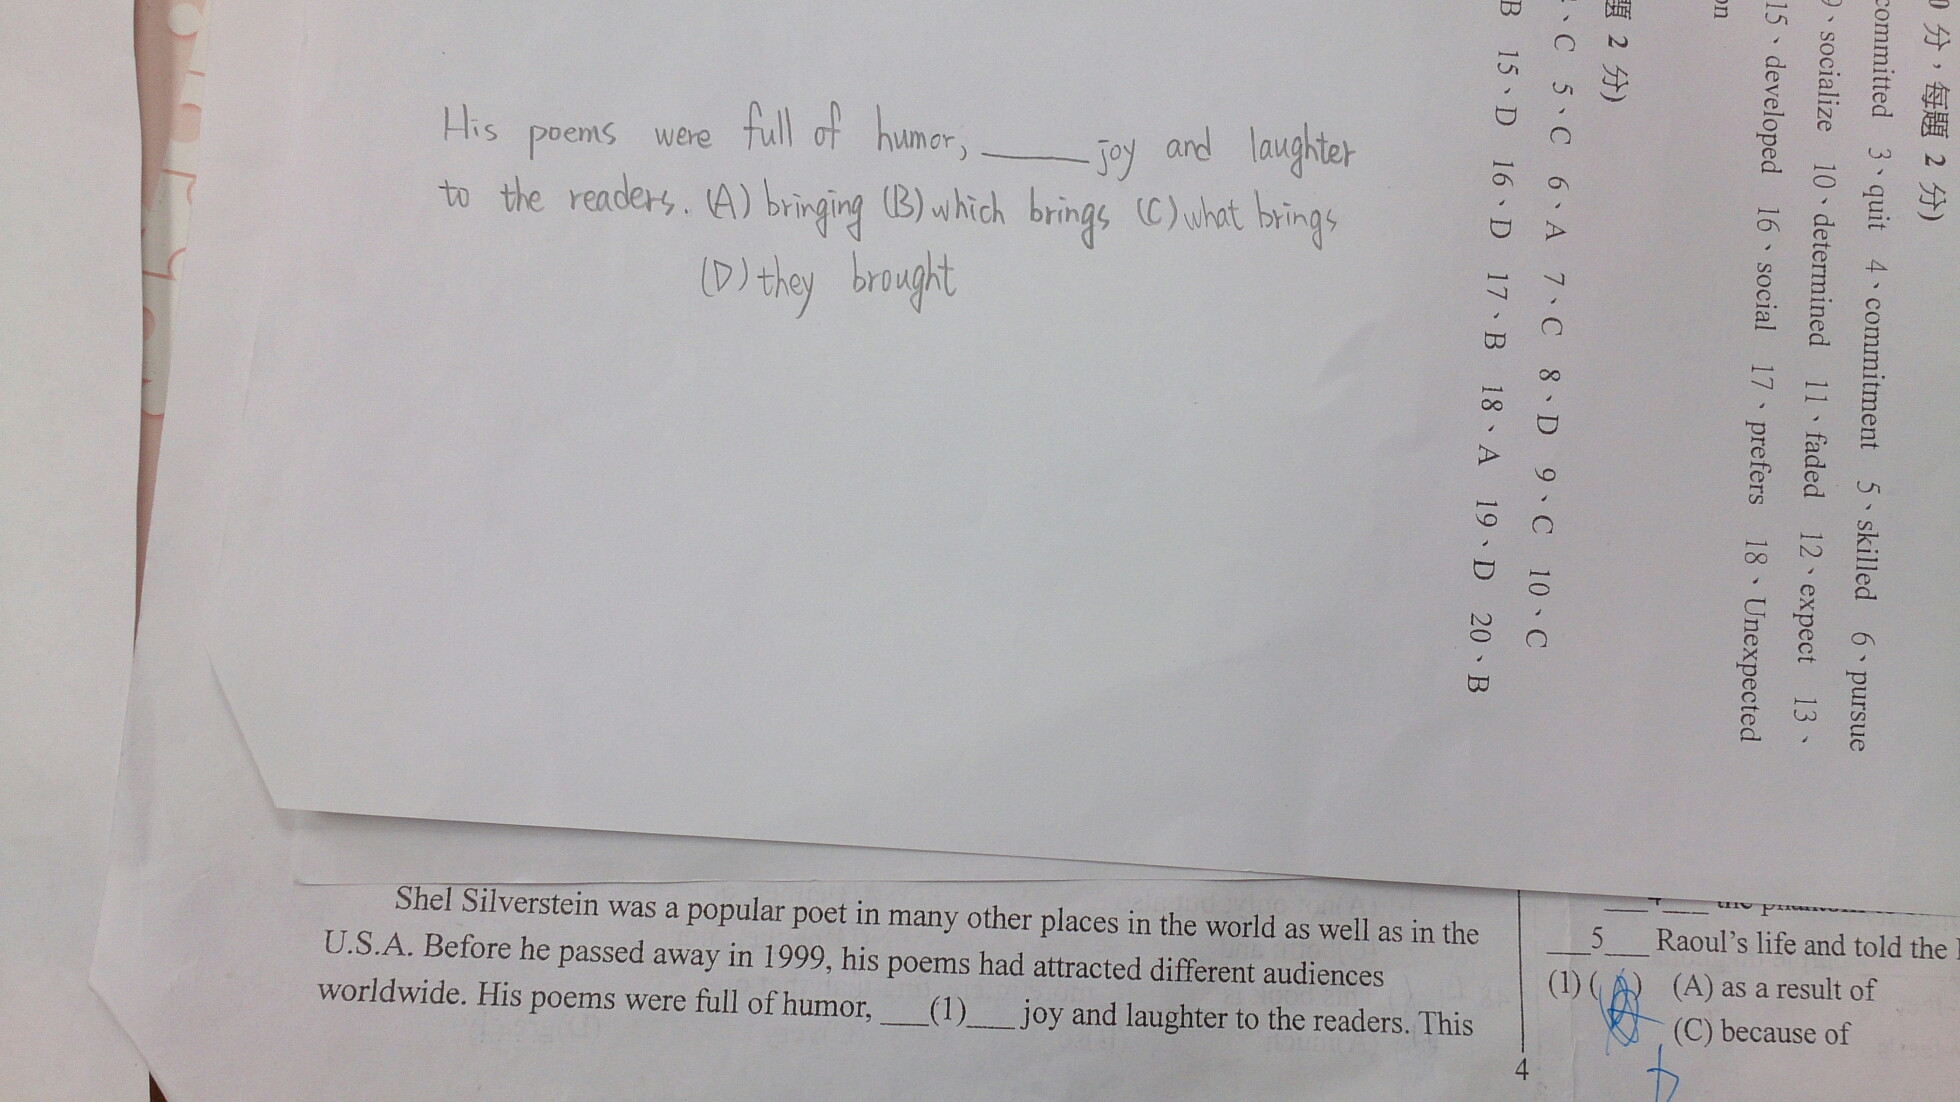 His poems were full of humor, ____ joy and laughter
to the readers. (A) bringing (B) which brings (C) what brings
(D) they brought
0 分，每題 2 分)
committed 3、quit 4、commitment 5、skilled 6、pursue
9、socialize 10、determined 11、faded 12、expect 13、
15、developed 16、social 17、prefers 18、Unexpected
on
題 2 分)
、C 5、C 6、A 7、C 8、D 9、C 10、C
B 15、D 16、D 17、B 18、A 19、D 20、B
Shel Silverstein was a popular poet in many other places in the world as well as in the
U.S.A. Before he passed away in 1999, his poems had attracted different audiences
worldwide. His poems were full of humor, ___(1)___ joy and laughter to the readers. This
4
___4___ the
___5___ Raoul's life and told the
(1) ( ) (A) as a result of
(C) because of